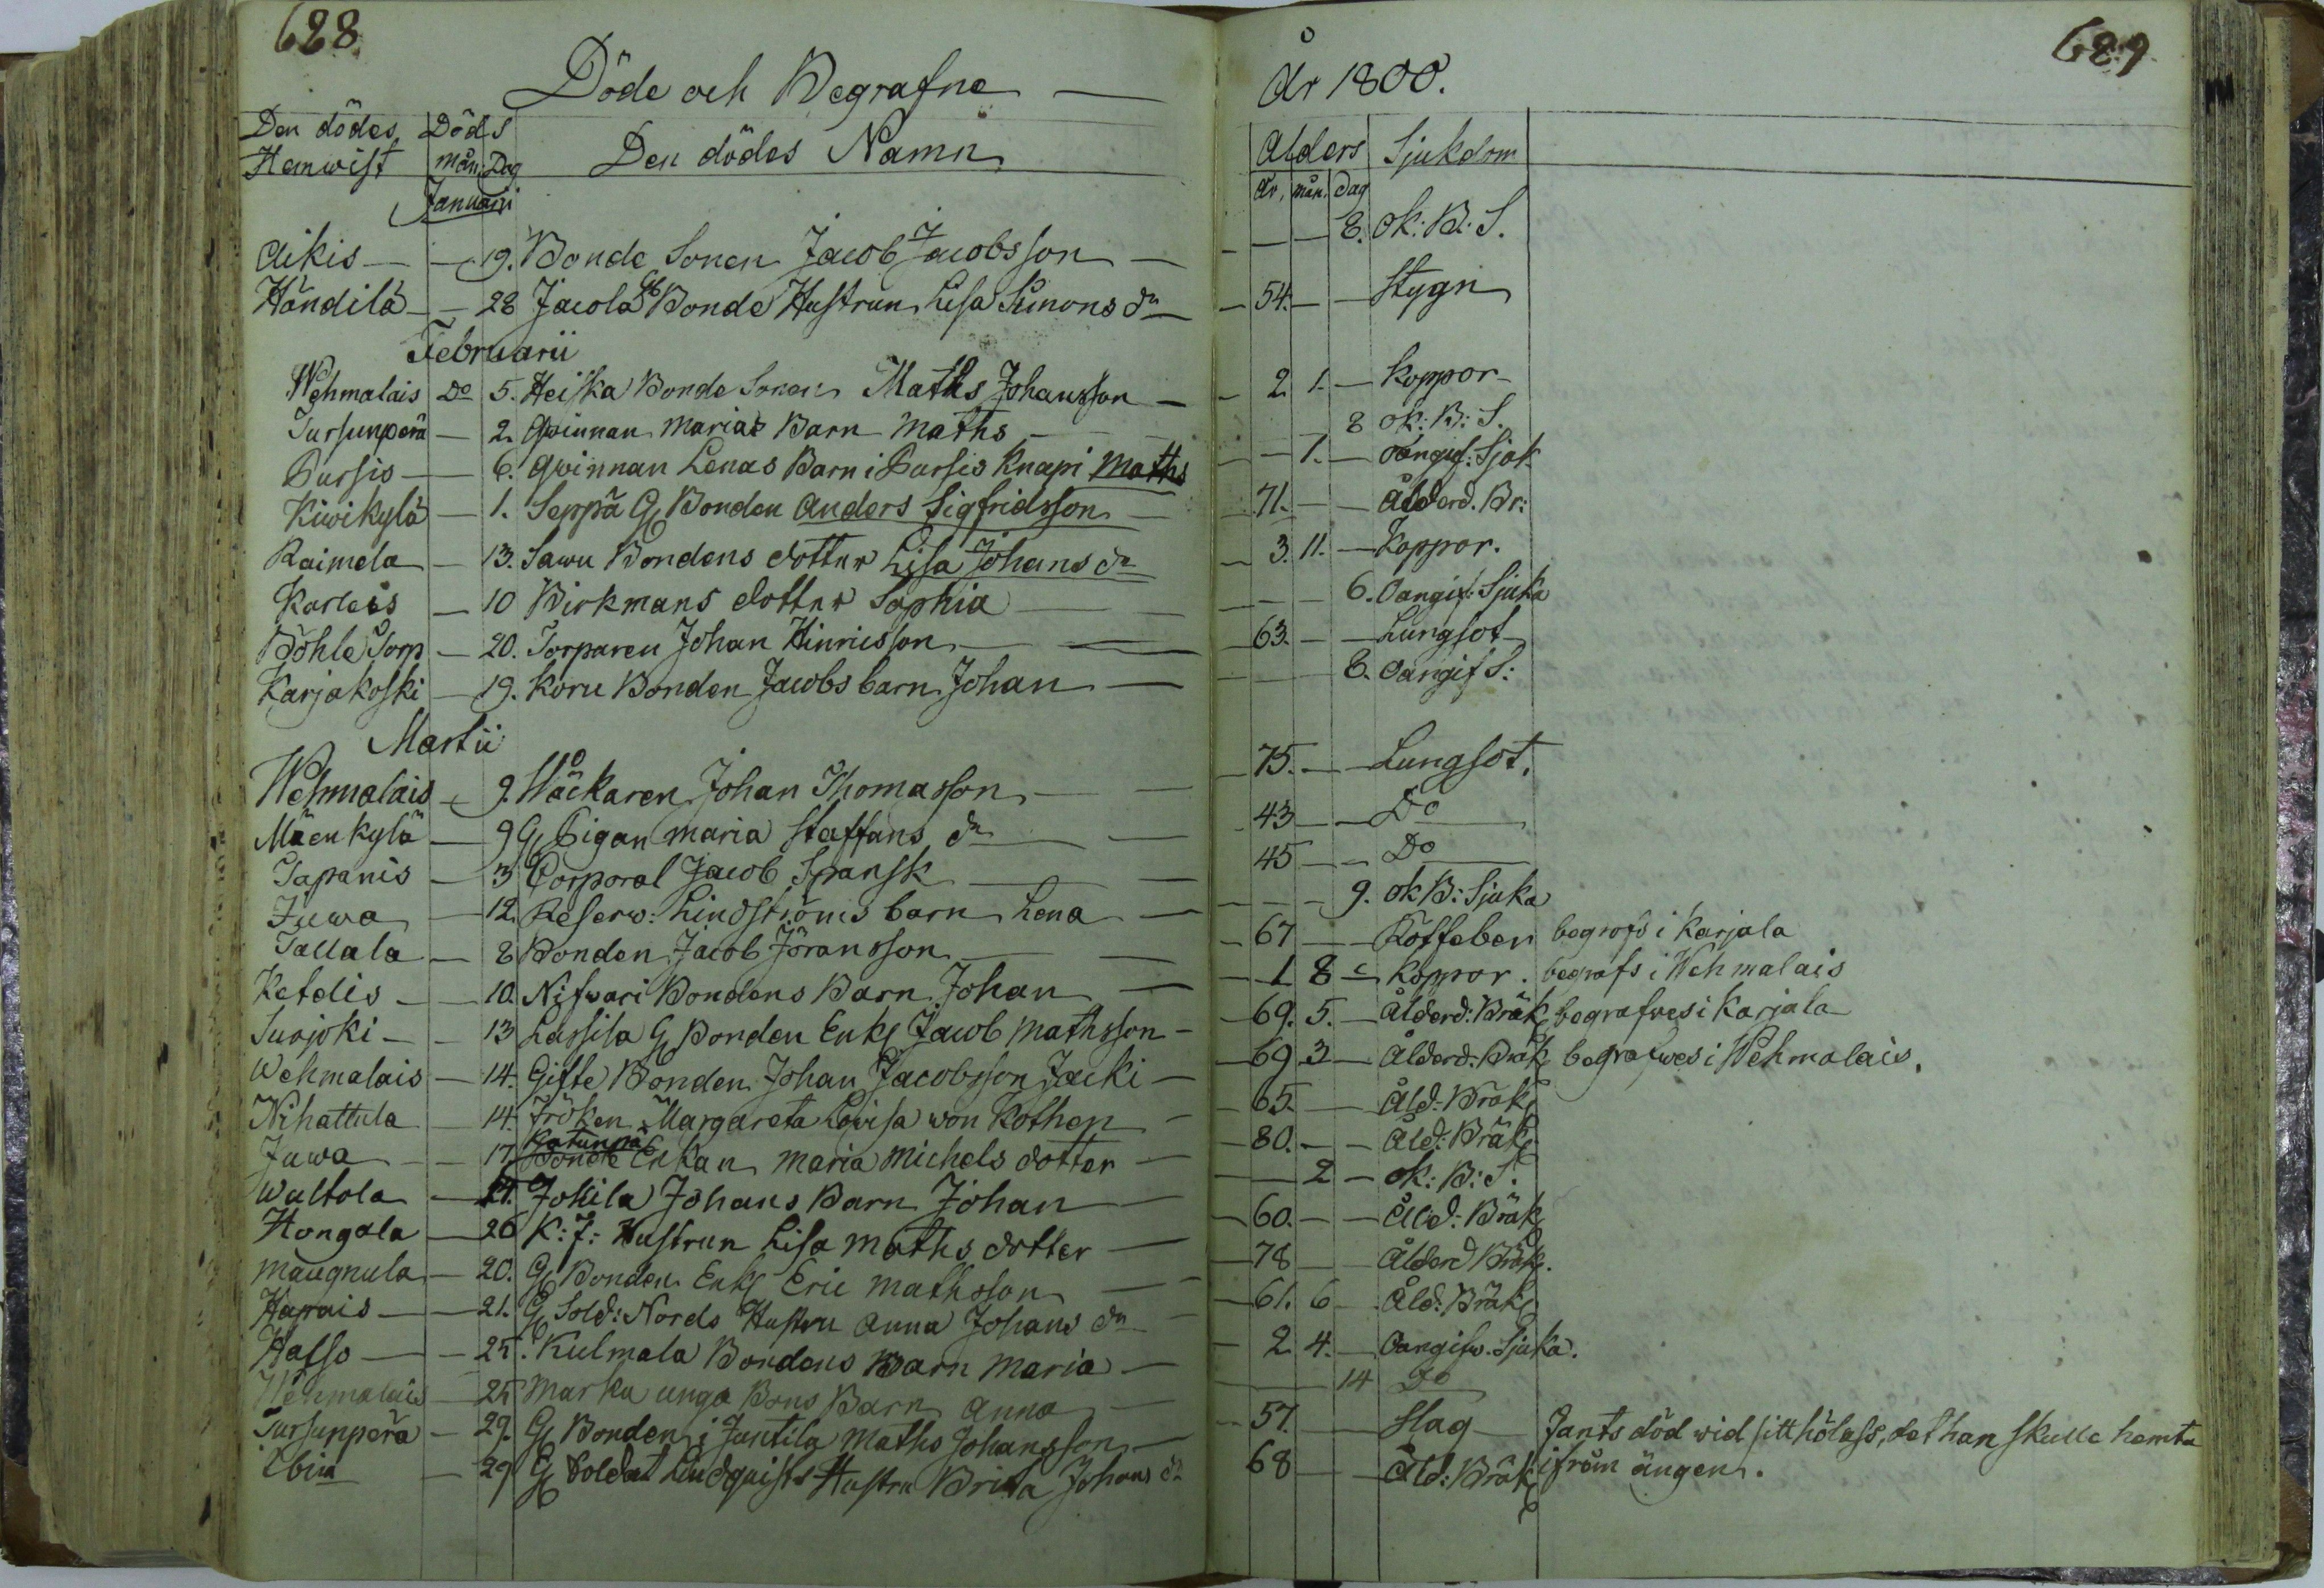 628.
Döde och Begrafne
Den dödes Döds
Hemwist mån: Dag Den dödes Namn
Januarii
Aikis 19. Bonde Sonen Jacob Jacobsson
Händilä 28 Jacola Gl Bonde Hustrun Lisa Simons dr
Februarii
Wehmalais Do 5. Heikka Bonde Sonen Maths Johansson
Tursunperä 2. Qwinnan Marias Barn Maths
Pursis 6. Qwinnan Lenas Barn i Pursis Knapi Maths
Kiwikylä 1. Seppä G Bonden Anders Sigfridsson
Raimela 13. Sawu Bondens dotter Lisa Johans dr
Karleis 10 Birkmans dotter Sophia
Böhle Torp 20. Torparen Johan Hinricsson
Karjakoski 19. Koru Bonden Jacobs barn Johan
Martii
Wehmalais 9. Wäckaren Johan Thomasson
Mäenkylä 9 G Pigan Maria Staffans dr
Tapanis 3 Corporal Jacob Spansk
Juwa 12. Reserw: Lindströms barn Lena
Tallala 8 Bonden Jacob Jöransson
Ketdis 10. Nifwari Bondens Barn Johan
Suojoki 13 Lassila G Bonden Enkl Jacob Mathsson
Wehmalais 14. Gifte Bonden Johan Jacobsson Jacki
Nihattula 14. Fröken Margareta Lovisa von Kothen
Juwa 17 Katunpä Bonde Enkan Maria Michels dotter
Waltola 21. Jokila Johans Barn Johan
Hongola 26 K: J: Hustrun Lisa Maths dotter
Maugnula 20. G Bonden Enkl Eric Mathsson
Harais 21. G Sold: Nords Hustru Anna Johans dr
Halso 25. Kulmala Bondens Barn Maria
Wehmalais 25 Marku unga Bons Barn Anna
Tursunperä 29. G Bonden i Jantila Maths Johansson
Ibm 29 G Soldat Lindquists Hustru Brita Johans dr
689
År 1800.
Alders Sjukdom
År, mån. Dag
8. ok: B: S.
54. Stygn
2 1. Koppor
8 ok: B: S.
1. Oangif: Sjuk
71. Ålderd. Br:
3. 11. Koppor.
6. Oangif: Sjuka
63. Lungsot
8. Oangif S:
75. Lungsot.
43 Do
45 Do
9. ok B: Sjuka
67 Rötfeber begrofs i Karjala
1 8 Koppor. begrafs i Wehmalais
69. 5. Ålderd: Bräk begrafwes i Karjala
69 3 Ålderd: Bräk begrafwes i Wehmalais.
65. Åld: Bräk
80. Åld: Bräk
2 ok: B: S.
60. Åld: Bräk
78 Ålderd Bräk.
61. 6 Åld: Bräk
2 4. Oangifw. Sjuka.
14 Do
57. Slag Jants död wid sitt hölass, det han skulle hemta
68 Åld: Bräk ifrån ängen.